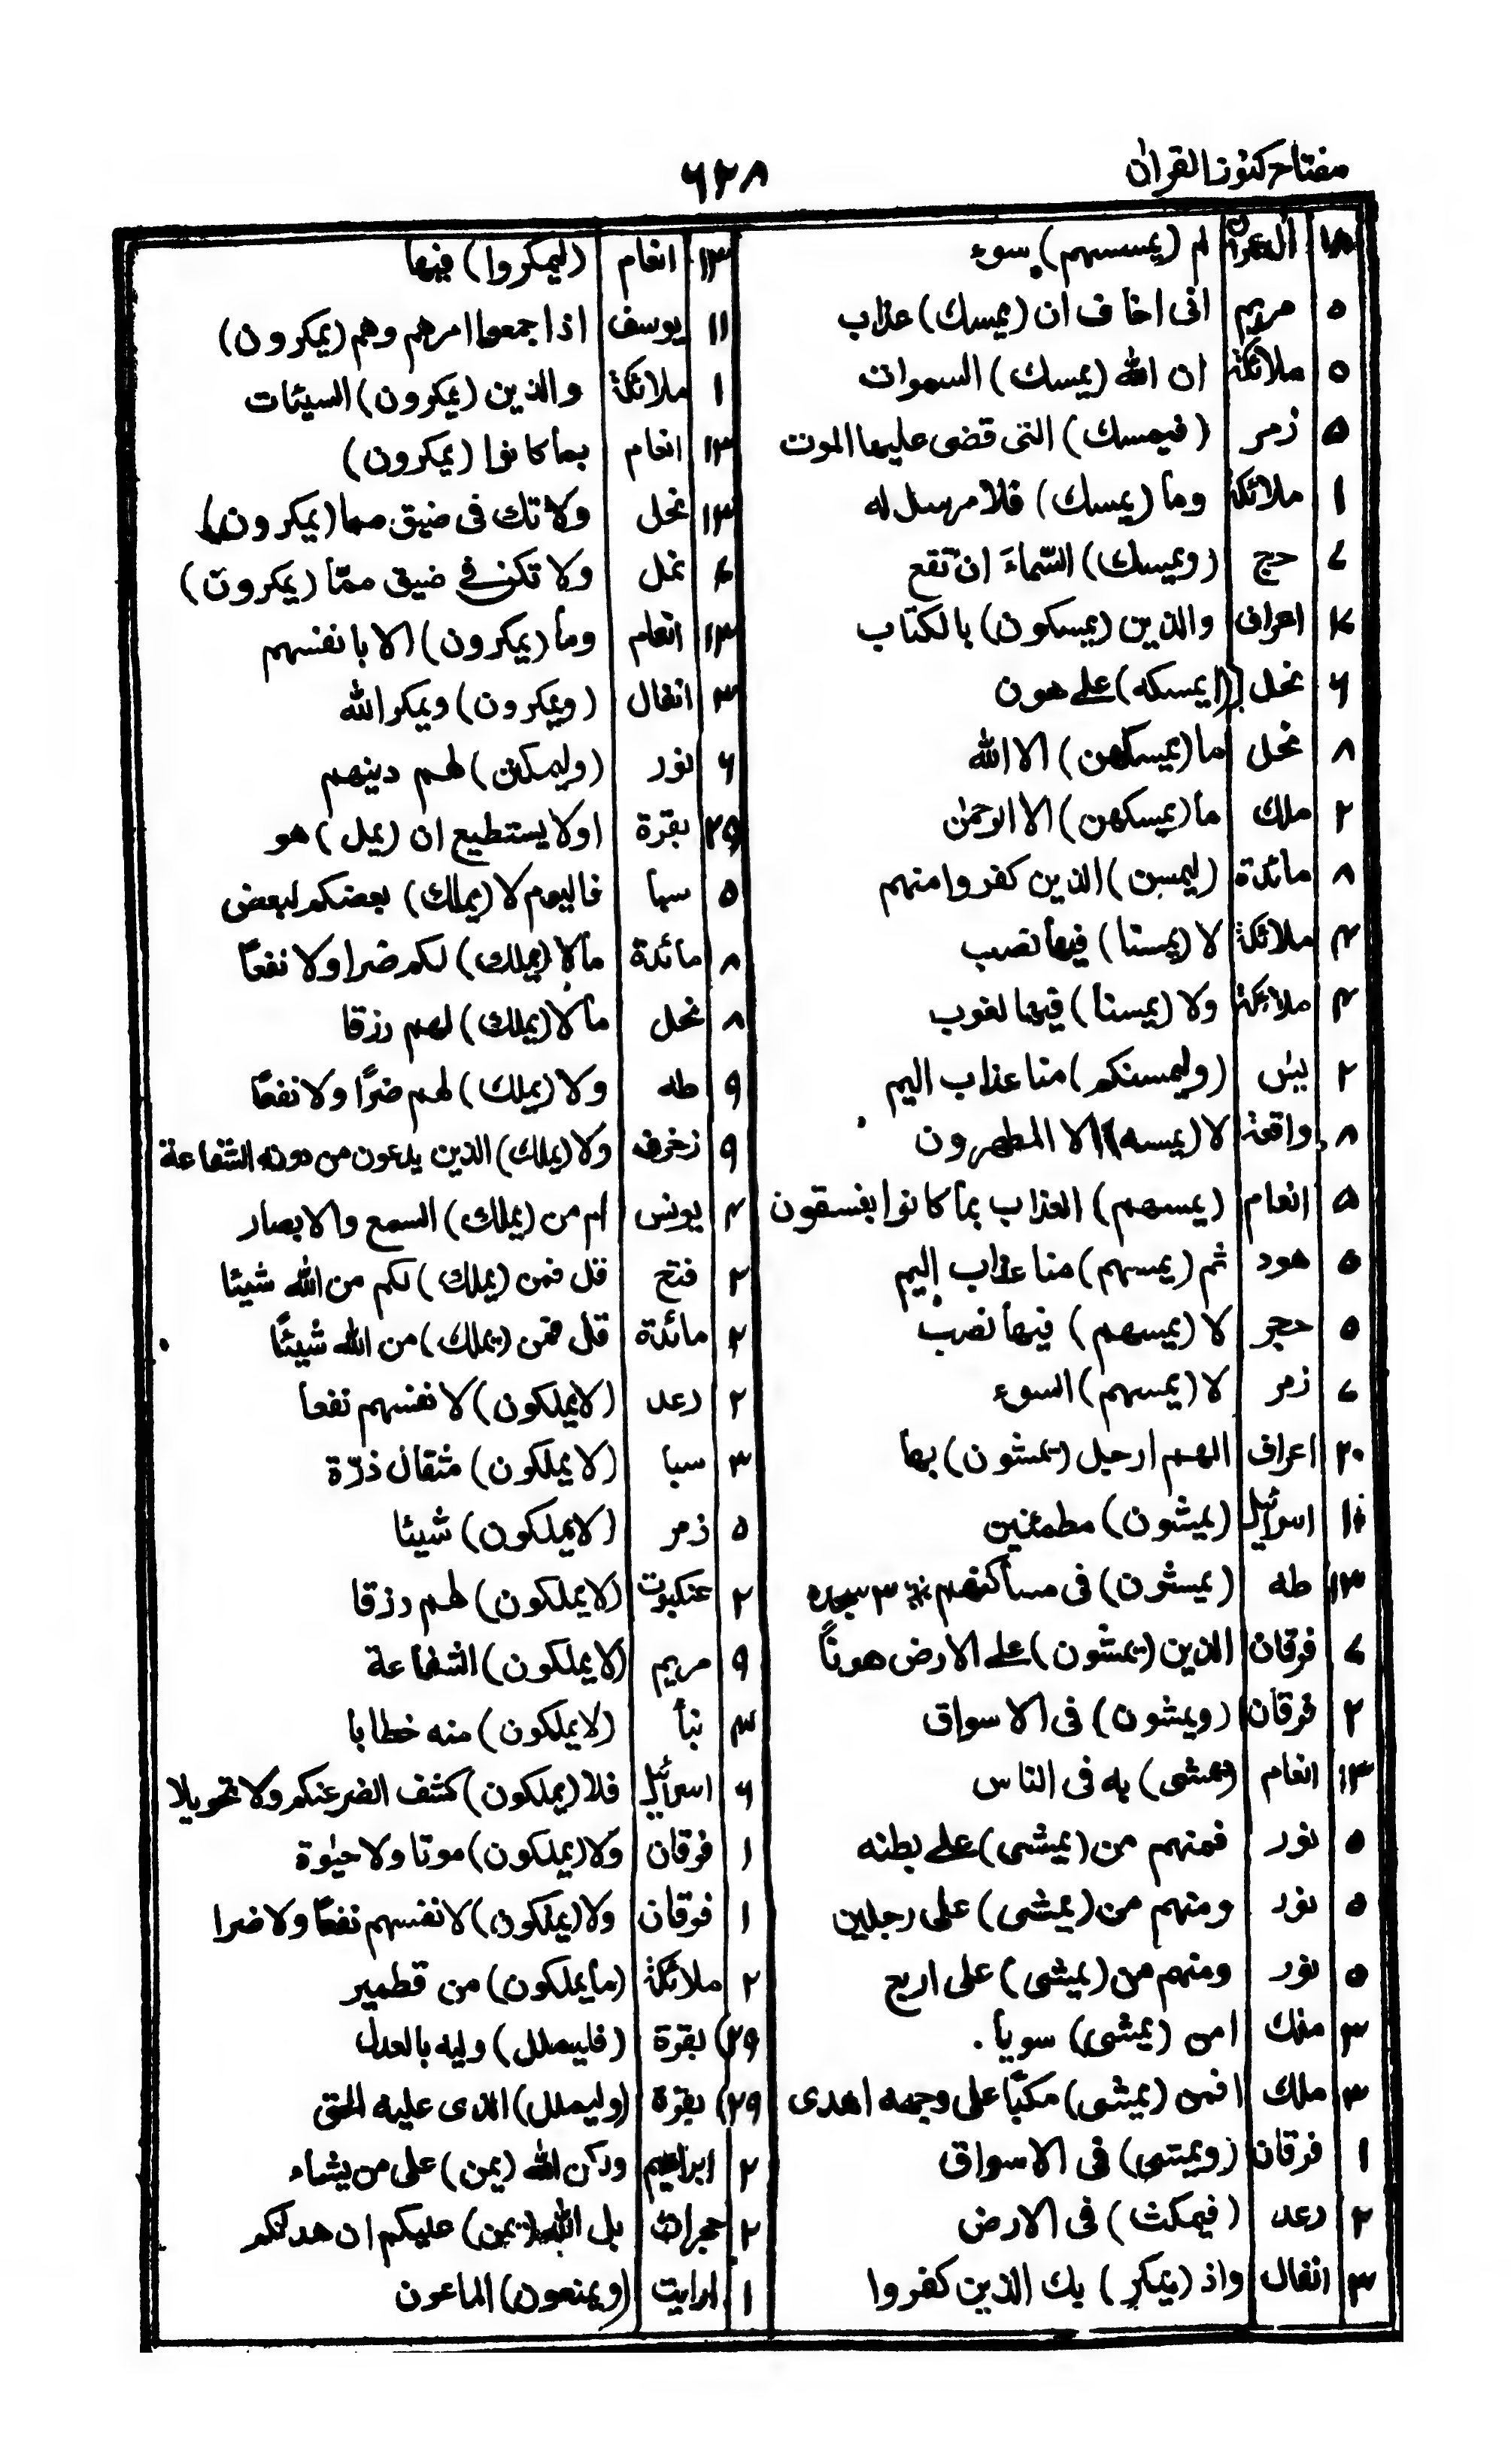 مفتاح كنوز القران
۶۲۸
۱۸ ال عمران لم (يمسسهم) سوء
۵ مريم انى اخاف ان (يمسك) عذاب
۵ ملائكة ان الله (يمسك) السموات
۵ زمر (فيمسك) التى قضى عليها الموت
۱ ملائكة وما (يمسك) فلا مرسل له
۷ حج (ويمسك) السّماءَ ان تقع
اعراف والذين (يمسكون) بالكتاب
۶ نحل (ايمسكه) على هون
۸ نحل ما (يمسكهن) الا الله
۲ ملك ما (يمسكهن) الا الرحمٰن
۸ مائدة (ليمسن) الذين كفروا منهم
۴ ملائكة لا (يمسنا) فيها نصب
۴ ملائكة ولا (يمسنا) فيها لغوب
۲ يٰسٓ (وليمسنكم) منا عذاب اليم
۸ واقعة لا (يمسه) الا المطهرون
۵ انعام (يمسهم) العذاب بما كانوا يفسقون
۵ هود ثم (يمسهم) منا عذاب اليم
۵ حجر لا (يمسهم) فيها نصب
۷ زمر لا (يمسهم) السوء
۲۰ اعراف الهم ارجل (يمشون) بها
اسرائيل (يمشون) مطمئنين
۱۳ طه (يمسشون) فى مساكنهم ٭ ۳ سجده
۷ فرقان الذين (يمشون) على الارض هونًا
۲ فرقان (ويمشون) فى الاسواق
۱۳ انعام (يمشى) به فى الناس
۵ نور فمنهم من (يمشى) على بطنه
۵ نور ومنهم من (يمشى) على رجلين
۵ نور ومنهم من (يمشى) على اربع
۳ ملك امن (يمشى) سويا
۳ ملك افمن (يمشى) مكبًا على وجهه اهدى
۱ فرقان (ويمشى) فى الاسواق
۲ رعد (فيمكث) فى الارض
۳ انفال واذ (يمكر) بك الذين كفروا
۱۳ انعام (ليمكروا) فيها
۱۱ يوسف اذ اجمعوا امرهم وهم (يمكرون)
۱ ملائكة والذين (يمكرون) السيئات
۱۳ انعام بما كانوا (يمكرون)
۱۳ نحل ولا تك فى ضيق مما (يمكرون)
۶ نمل ولا تكن فى ضيق ممّا (يمكرون)
۱۳ انعام وما (يمكرون) الا بانفسهم
۳ انفال (ويمكرون) ويمكر الله
۶ نور (وليمكنن) لهم دينهم
۲۵ بقرة اولا يستطيع ان (يمل) هو
۵ سبا فاليوم لا (يملك) بعضكم لبعض
۸ مائدة مالا (يملك) لكم ضرا ولا نفعًا
۸ نحل مالا (يملك) لهم رزقا
۹ طه ولا (يملك) لهم ضرًا ولا نفعًا
۹ زخرف ولا (يملك) الذين يدعون من دونه الشفاعة
۴ يونس ام من (يملك) السمع والابصار
۲ فتح قل فمن (يملك) لكم من الله شيئا
۲ مائدة قل فمن (يملك) من الله شيئًا
۲ رعد (لا يملكون) لانفسهم نفعا
۳ سبا (لا يملكون) مثقال ذرّة
۵ زمر (لا يملكون) شيئا
۲ عنكبوت (لا يملكون) لهم رزقا
۹ مريم (لا يملكون) الشفاعة
۳ نبأ (لا يملكون) منه خطابا
۶ اسرائيل فلا (يملكون) كشف الضر عنكم ولا تحويلا
۱ فرقان ولا (يملكون) موتا ولا حيٰوة
۱ فرقان ولا (يملكون) لانفسهم نفعًا ولا ضرا
۲ ملائكة (ما يملكون) من قطمير
۲۹ بقرة (فليملل) وليه بالعدل
۲۹ بقرة (وليملل) الذى عليه الحق
۲ ابراهيم ولكن الله (يمن) على من يشاء
۲ حجرات بل الله (يمن) عليكم ان هدٰكم
۱ ارايت (ويمنعون) الماعون